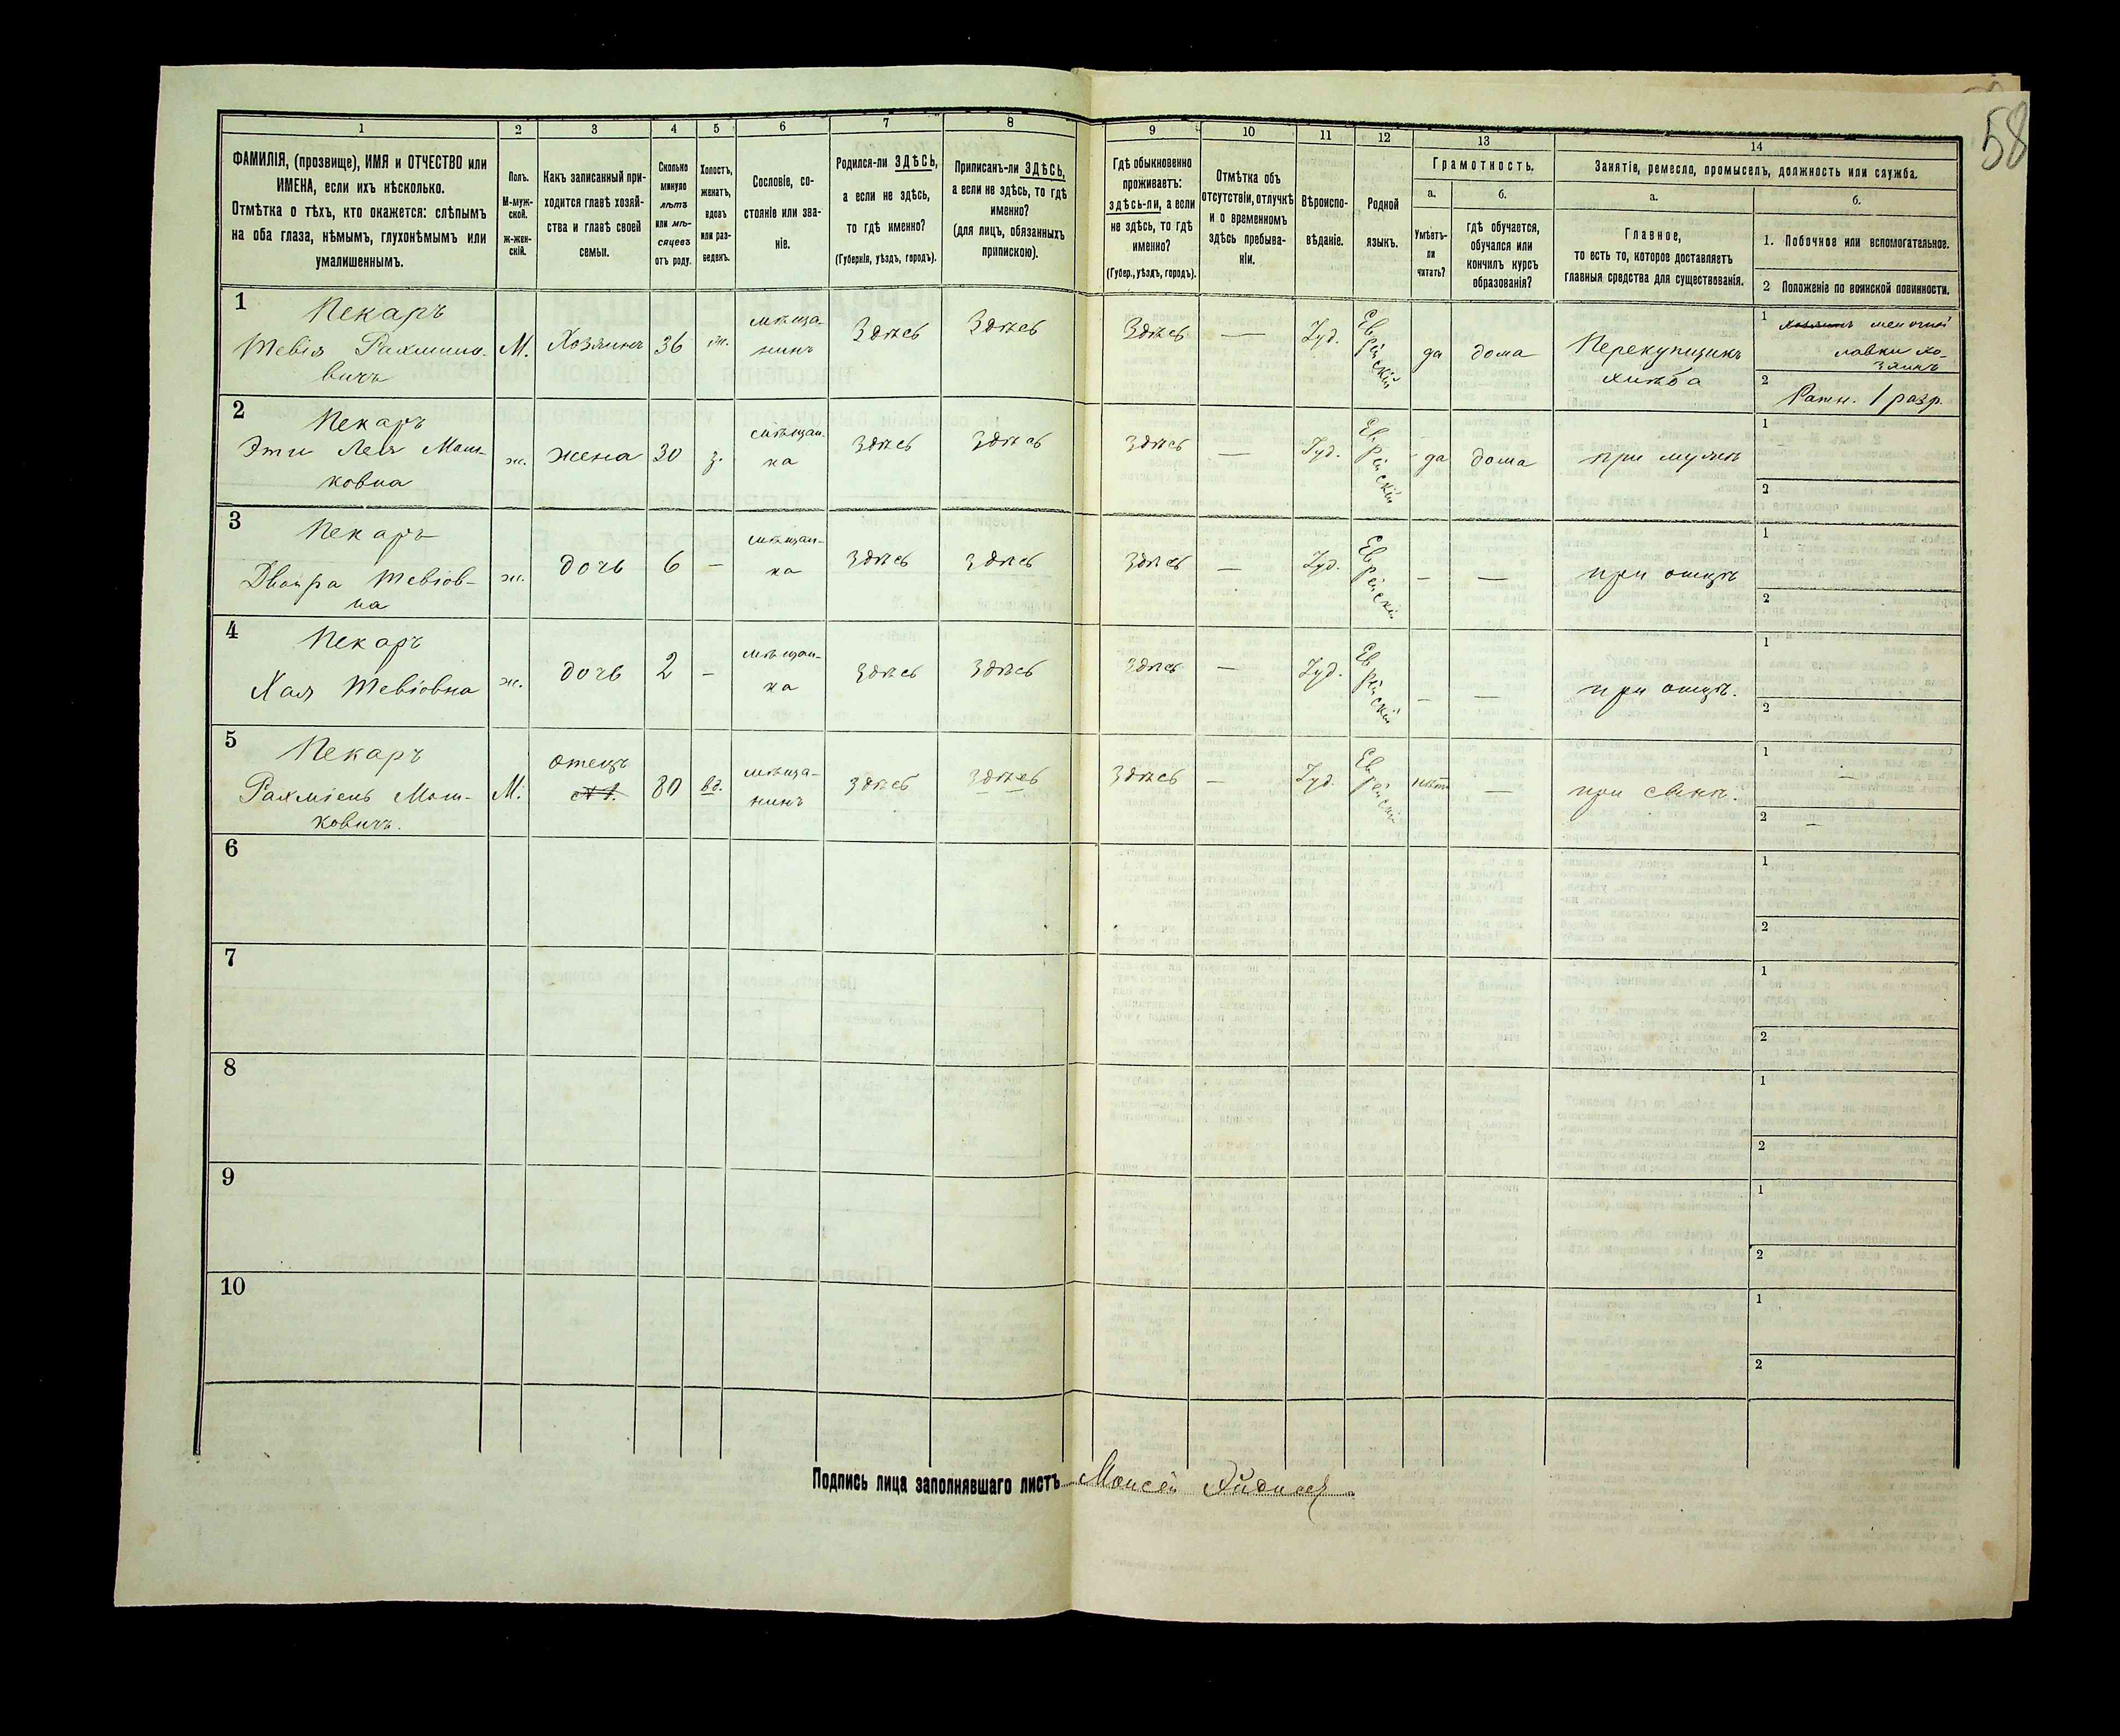 58
1 2 3 4 5 6 7 8 9 10 11 12 13 14
ФАМИЛІЯ, (прозвище), ИМЯ и ОТЧЕСТВО или
ИМЕНА, если ихъ нѣсколько.
Отмѣтка о тѣхъ, кто окажется: слѣпымъ
на оба глаза, нѣмымъ, глухонѣмымъ или
умалишеннымъ.
Полъ.
М-муж-
ской.
ж-жен-
скій.
Какъ записанный при-
ходится главѣ хозяй-
ства и главѣ своей
семьи.
Сколько
минуло
лѣтъ
или мѣ-
сяцевъ
отъ роду.
Холостъ,
женатъ,
вдовъ
или раз-
веденъ.
Сословіе, со-
стояніе или зва-
ніе.
Родился-ли ЗДѢСЬ,
а если не здѣсь,
то гдѣ именно?
(Губернія, уѣздъ, городъ).
Приписанъ-ли ЗДѢСЬ,
а если не здѣсь, то гдѣ
именно?
(для лицъ, обязанныхъ
припискою).
Гдѣ обыкновенно
проживаетъ:
здѣсь-ли, а если
не здѣсь, то гдѣ
именно?
(Губер., уѣздъ, городъ).
Отмѣтка объ
отсутствіи, отлучкѣ
и о временномъ
здѣсь пребыва-
ніи.
Вѣроиспо-
вѣданіе.
Родной
языкъ.
Грамотность.
а.
Умѣетъ-
ли
читать?
б.
гдѣ обучается,
обучался или
кончилъ курсъ
образованія?
Занятіе, ремесло, промыселъ, должность или служба.
а.
Главное,
то есть то, которое доставляетъ
главныя средства для существованія.
б.
1. Побочное или вспомогательное.
2 Положеніе по воинской повинности.
1
Пекаръ
Тевія Рахмило-
вичъ
М.
Хозяинъ
36
ж.
мѣща-
нинъ
Здѣсь
Здѣсь
Здѣсь
—
Іуд.
Еврейскій
да
дома
Перекупщикъ
хлѣба
1
мелочной
лавки хо-
зяинъ
2
Ратн. 1 разр.
2
Пекаръ
Эти Лея Мош-
ковна
ж.
жена
30
з.
мѣщан-
ка
Здѣсь
Здѣсь
Здѣсь
—
Іуд.
Еврейскій
да
дома
при мужѣ
1
2
3
Пекаръ
Двойра Тевіов-
на
ж.
дочь
6
—
мѣщан-
ка
Здѣсь
Здѣсь
Здѣсь
—
Іуд.
Еврейскій
—
—
при отцѣ
1
2
4
Пекаръ
Хая Тевіовна
ж.
дочь
2
—
мѣщан-
ка
Здѣсь
Здѣсь
Здѣсь
—
Іуд.
Еврейскій
—
—
при отцѣ.
1
2
5
Пекаръ
Рахміель Мош-
ковичъ.
М.
отецъ
80
вд.
мѣща-
нинъ
Здѣсь
Здѣсь
Здѣсь
—
Іуд.
Еврейскій
нѣтъ
—
при сынѣ.
1
—
2
—
6
1
2
7
1
2
8
1
2
9
1
2
10
1
2
Подпись лица заполнявшаго листъ Моисей